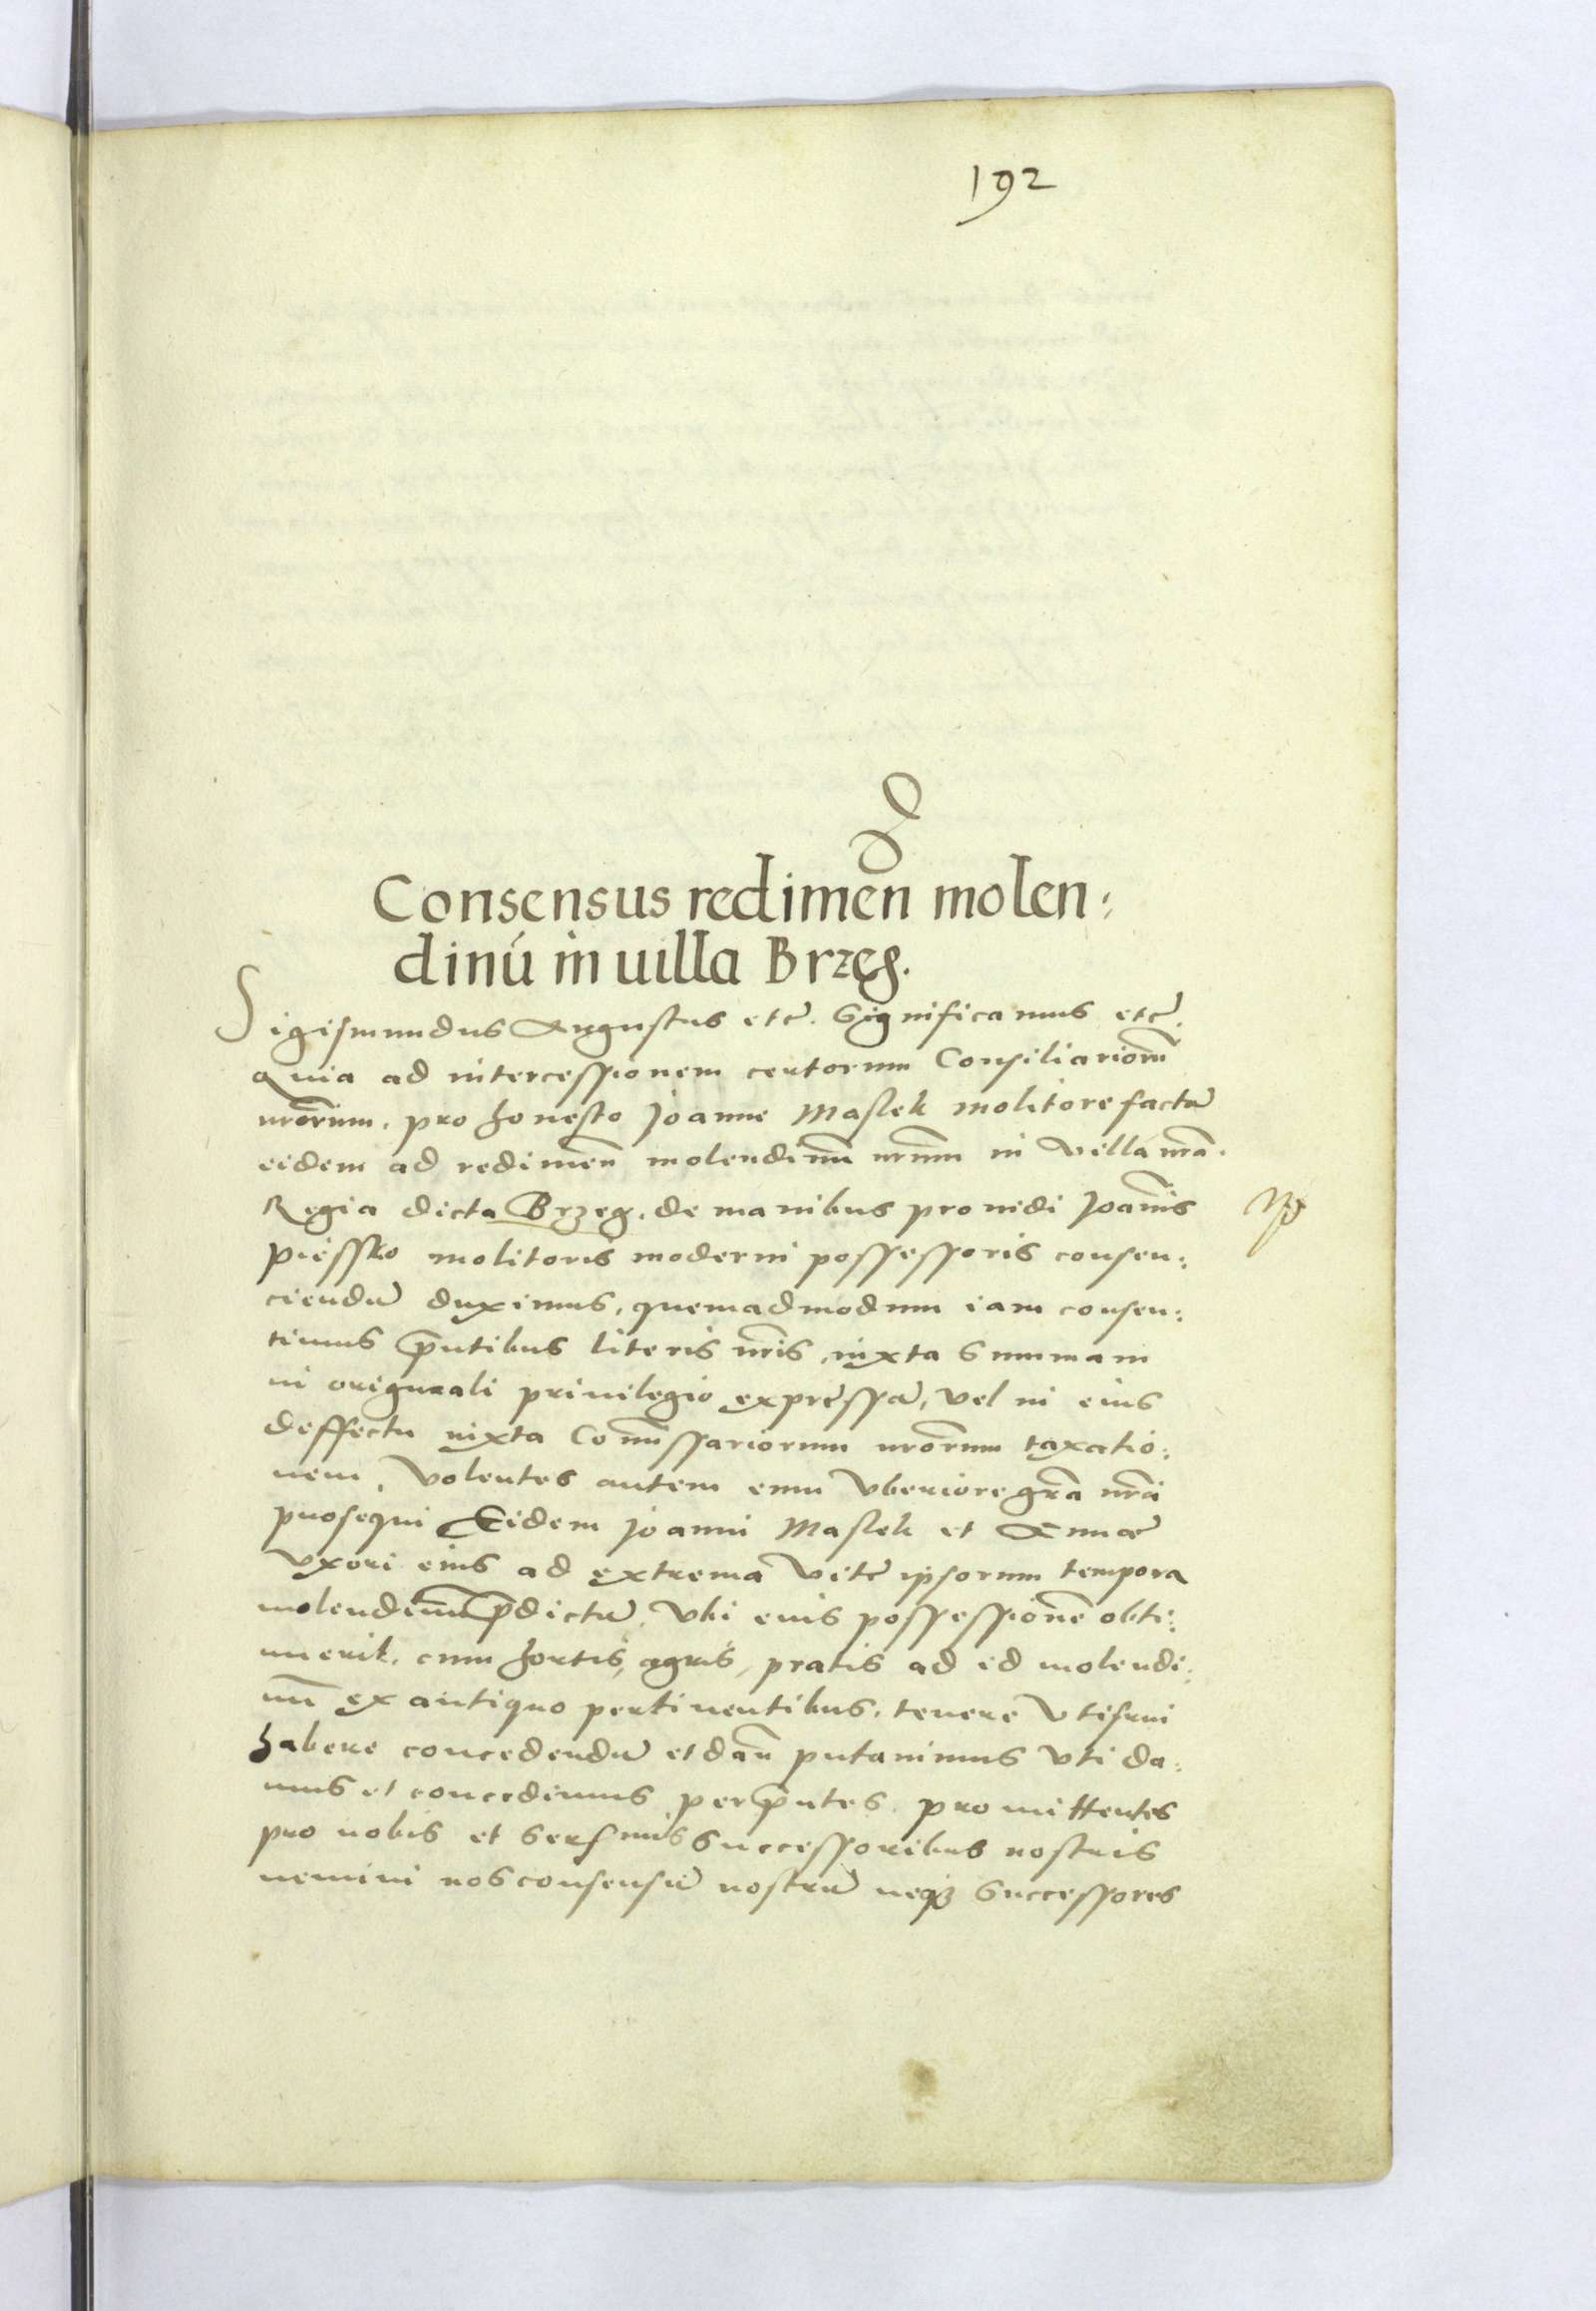 192
Consensus redimen̄ molen:
dinú in uilla Brzeg.
Sigismundus Augustus etc̄. Significamus etc̄.
Quia ad intercessionem certorum Consiliariorū
nrōrum, pro honesto Joanne Maslek molitore factā
eidem ad redimen̄ molendinū nrūm in villa nrā.
Regia dicta Brzeg, de manibus prouidi Joannis
piessko molitoris moderni possessoris consen:
ciendū duximus, quemadmodum iam consen:
timus p̄ntibus literis nrīs, iuxta summam
in originali priuilegio expressā, vel in eius
deffectu iuxta Com̄issariorum nrōrum taxatio:
nem, Volentes autem eum vberiore grā nrā
prosequi Eidem Joanni Maslek et Annæ
vxori eius ad extrema vitę ipsorum tempora
molendinū p̄dictū, vbi eius possessionē obti:
nuerit, cum hortis, agris, pratis ad id molendi:
nū ex antiquo pertinentibus, tenere vtifrui
habere concedendū et dan̄ putauimus vti da:
mus et concedimus per p̄ntes, promittentes
pro nobis et serḿis successoribus nostris
nemini nos consensū nostrū neqȝ successores